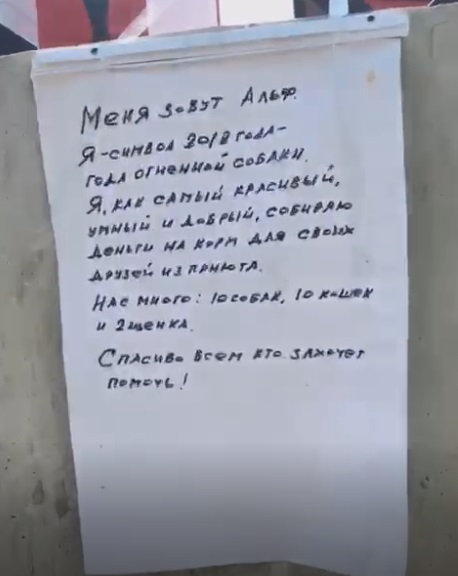 Меня зовут Альф.
Я-символ 2018 года-
года огненной собаки.
Я, как самый красивый,
умный и добрый, собираю
деньги на корм для своих
друзей из приюта.
Нас много: 10 собак, 10 кошек
и 2 щенка.
Спасибо всем кто захочет
помочь!